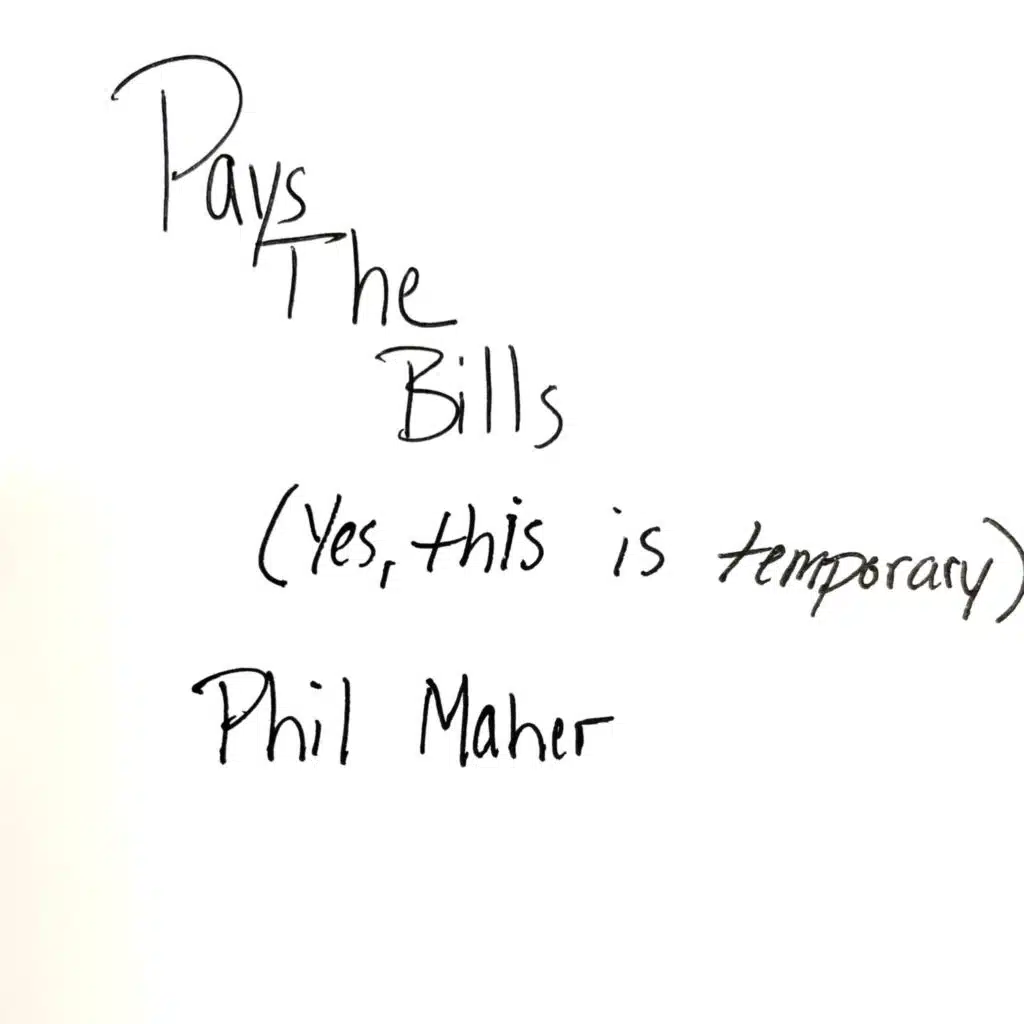 Pays
The
Bills
(Yes, this is temporary)
Phil Maher